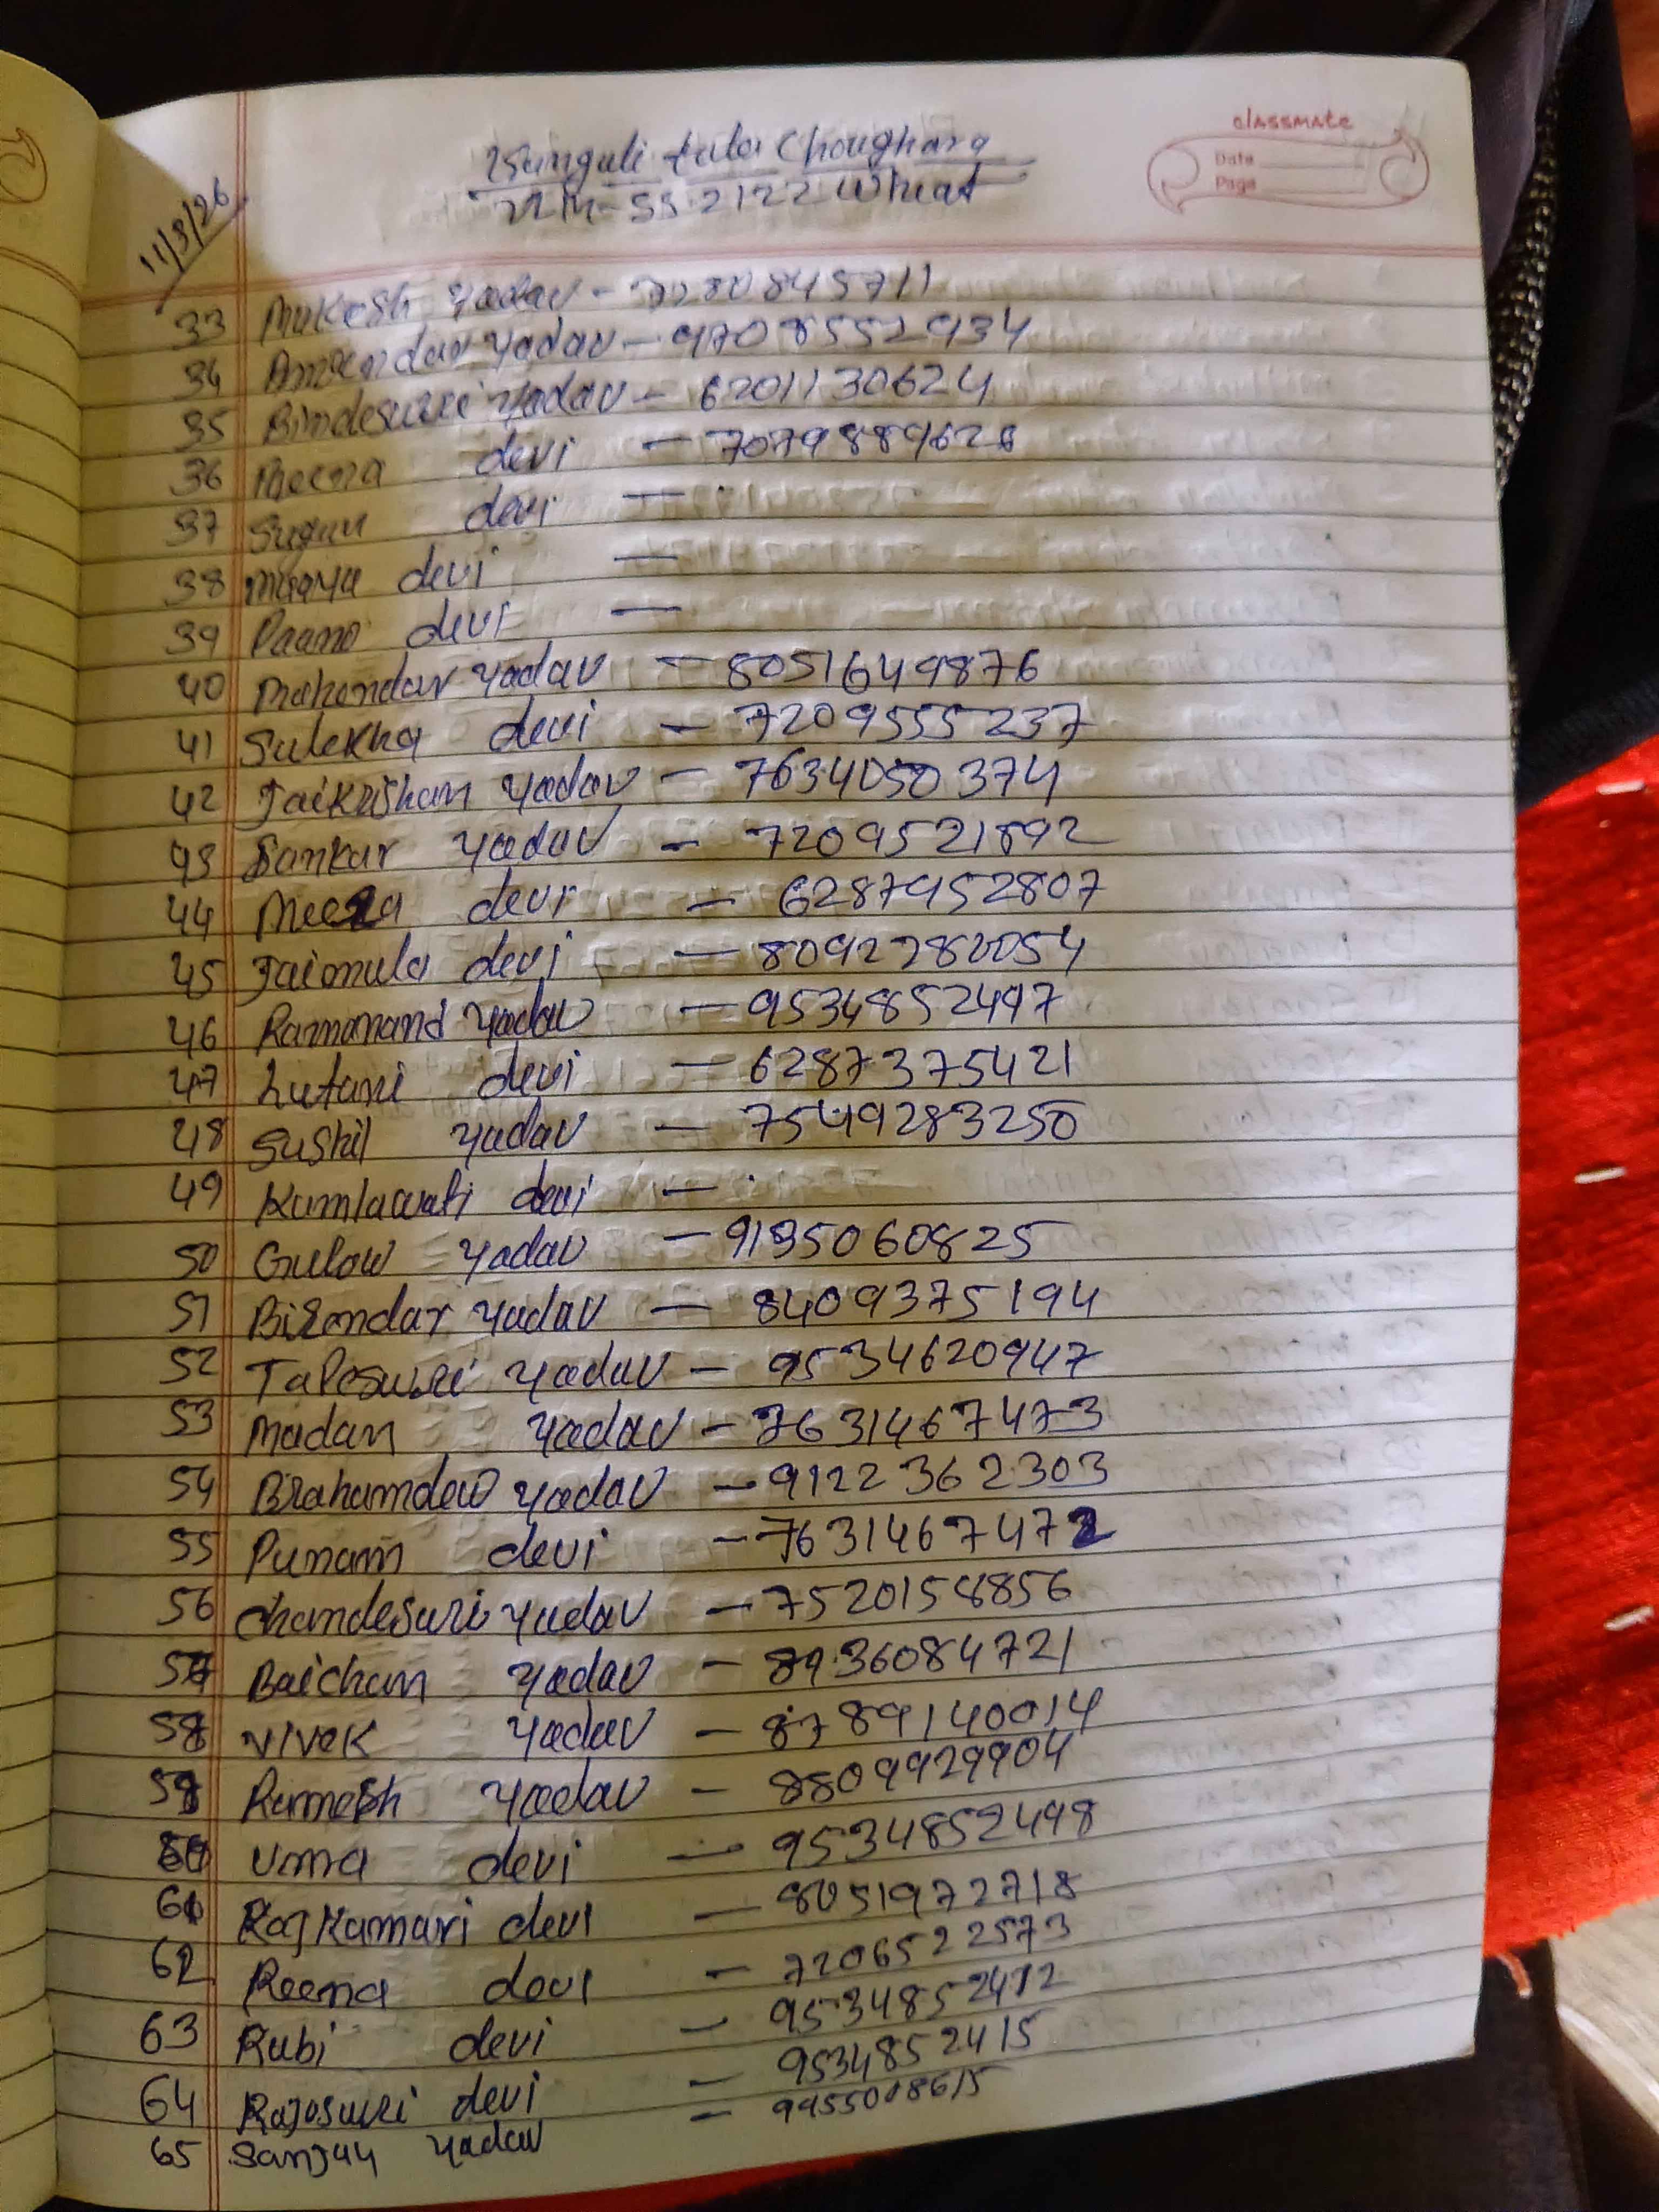 classmate
Date
Page
Kunguli tula Choughara
NM-SS 2122 Wheat
11/3/26
33 Mukesh Yadav - 7280845711
34 Amrendar Yadav - 9708552934
35 Bindesuri Yadav - 6201130624
36 Meena devi - 7079889628
37 Sugun devi -
38 Maaya devi -
39 Paano devi -
40 Mahendar Yadav - 8051649876
41 Sulekha devi - 7209555237
42 Jaikrishan Yadav - 7634050374
43 Sankar Yadav - 7209521892
44 Meera devi - 6287952807
45 Jaimula devi - 8092280054
46 Ramanand Yadav - 9534852497
47 Lutani devi - 6287375421
48 Sushil Yadav - 7549283250
49 Kumlawati devi -
50 Gulow Yadav - 9135060825
51 Birendar Yadav - 8409375194
52 Talesuri Yadav - 9534620947
53 Madan Yadav - 7631467473
54 Brahamdew Yadav - 9122362303
55 Punam devi - 7631467472
56 chandesuri Yadav - 7520158856
57 Baichan Yadav - 8936084721
58 Vivek Yadav - 8789140014
59 Ramesh Yadav - 8809929904
60 Uma devi - 9534852498
61 Rajkumari devi - 8051972718
62 Reena devi - 7206522573
63 Rubi devi - 9534852412
64 Rajosuri devi - 9534852415
65 Sanjay Yadav - 9955008615